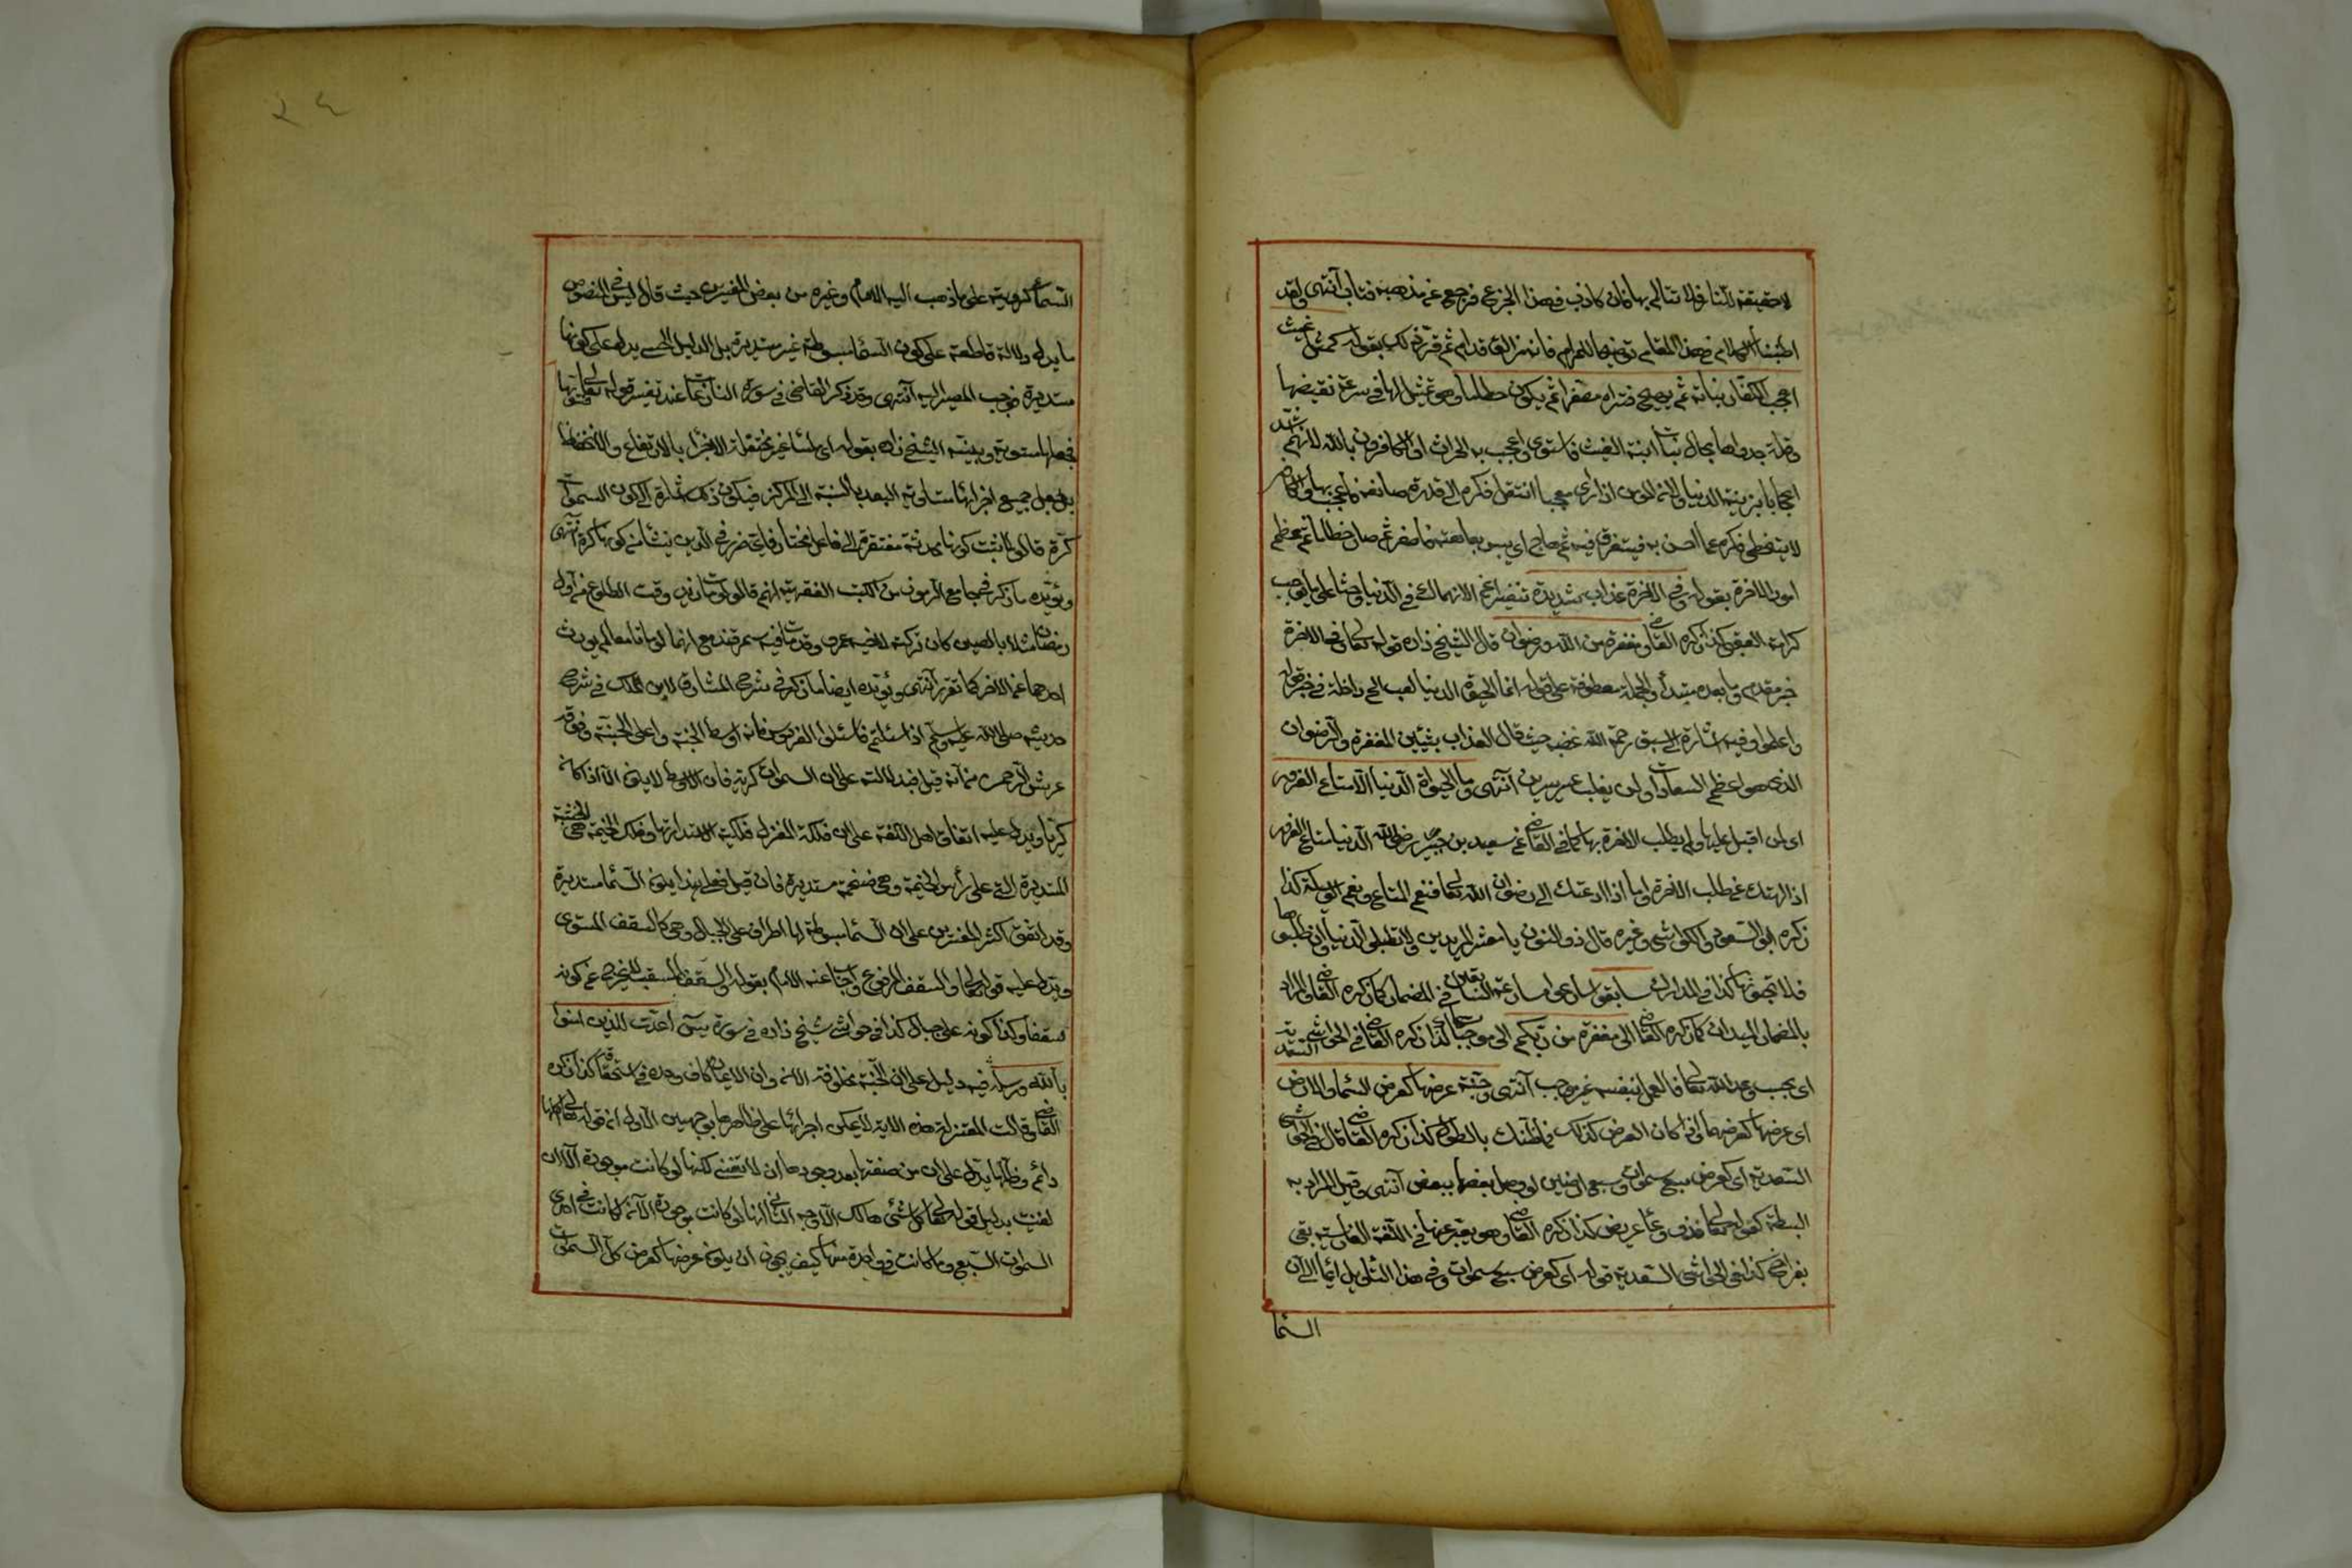 لا حقيقة للنار ولا تتألم بها فان كاذب فهذا الجزع فرجع عن مذهبه فتاب انتهى ولقد
اطنبنا الكلام في هذا المقام توضيحا للمرام فانه مزالق اقدام ثم قرر ذلك بقوله كمثل غيث
اعجب الكفار نباته ثم يهيج فتراه مصفرا ثم يكون حطاما وهو تمثيل لها في سرعة تقضيها
وقلة جدواها بحال نبات انبته الغيث فاستوى واعجب به الحراث او الكافرون بالله لانهم اشد
اعجابا بزينة الدنيا ولان المؤمن اذا رأى معجبا انتقل فكره الى قدرة صانعه فاعجب بها والكافر
لا يتخطى فكره عما احسن به فيستغرق فيه ثم هاج اي يبس بعاهة فاصفر ثم صار حطاما ثم عظم
امور الاخرة بقوله وفي الاخرة عذاب شديد تنفيرا عن الانهماك في الدنيا وحثا على ما يوجب
كرامة العقبى كذا ذكره القاضي ومغفرة من الله ورضوان قال الشيخ زاده قوله تعالى وفي الاخرة
خبر مقدم وما بعده مبتدأ والجملة معطوفة على قوله انما الحيوة الدنيا لعب الخ داخلة في خبر قوله
واعلموا وفيه اشارة الى سبق رحمة الله غضبه حيث قال العذاب بشيئين المغفرة والرضوان
الذي هو اعظم السعادات ولن يغلب عسر يسرين انتهى وما الحيوة الدنيا الا متاع الغرور
اي لمن اقبل عليها ولم يطلب الاخرة بها كما في القاضي عن سعيد بن جبير رضي الله الدنيا متاع الغرور
اذا الهتك عن طلب الاخرة واما اذا دعتك الى رضوان الله تعالى فنعم المتاع ونعم الوسيلة كذا
ذكره ابو السعود والكواشي وغيره قال ذو النون يا معشر المريدين لا تطلبوا الدنيا وان طلبتموها
فلا تحبوها كذا في المدارك سابقوا سارعوا مسارعة السابقين في المضمار كما ذكره القاضي المراد
بالمضمار الميدان كما ذكره القاضي الى مغفرة من ربكم الى موجباتها كذا ذكره القاضي في الحواشي السعدية
اي بحسب وعد الله تعالى فالعمل بنفسه غير موجب انتهى وجنة عرضها كعرض السماء والارض
اي عرضها كعرضهما واذا كان العرض كذلك فما ظنك بالطول كذا ذكره القاضي قال في الحواشي
السعدية اي كعرض سبع سموات وسبع ارضين لو وصل بعضها ببعض انتهى وقيل المراد به
البسطة كقوله تعالى فذو دعاء عريض كذا ذكره القاضي وهو يعبر عنها في اللغة الفارسية بقي
بفراخي كذا في الحواشي السعدية قوله اي كعرض سبع سموات وفي هذا التأويل ايماء الى ان
السماء
٢٤
السماء كروية على ما ذهب اليه الامام وغيره من بعض المفسرين حيث قال ليس في النصوص
ما يدل دلالة قاطعة على كون السماء مبسوطة غير مستديرة بل الدليل الحسي يدل على كونها
مستديرة فوجب المصير اليه انتهى وقد ذكر القاضي في سورة النازعات عند تفسير قوله تعالى فسويها
فجعلها مستوية وبينه الشيخ زاده بقوله اي ملساء غير مختلفة الاجزاء بالارتفاع والانخفاض
بل جعل جميع اجزائها متساوية البعد بالنسبة الى المركز فيكون ذلك اشارة الى كون السموات
كرة قالوا لما ثبت كونها محدثة مفتقرة الى فاعل مختار فاي ضرر في الدين ينشأ من كونها كرة انتهى
ويؤيده ما ذكر في جامع الرموز من الكتب الفقهية انهم قالوا لو مات زيد وقت الطلوع من اول
رمضان مثلا بالصين كان تركته لاخيه عمرو وقد مات فيه بسمرقند مع انهما لو ماتا معا لم يورث
احدهما عن الاخر كما تقرر انتهى ويؤيده ايضا ما ذكر في شرح المشارق لابن الملك في شرح
حديثه صلى الله عليه وسلم اذا سئلتم فاسئلوا الفردوس فانه اوسط الجنة واعلى الجنة وفوقه
عرش الرحمن منه قيل فيه دلالة على ان السموات كرية فان الاوسط لا يكون الا اذا كان
كريا ويدل عليه اتفاق اهل اللغة على ان فلكة المغزل فلكية لاستدارتها وفلك الخيمة هي الخشبة
المستديرة التي على رأس الخيمة وهي ضخمة مستديرة فان قيل فعلى هذا يكون السماء مستديرة
وقد اتفق اكثر المفسرين على ان السماء مبسوطة لها اطراف على الجبال وهي كالسقف المستوى
ويدل عليه قوله تعالى والسقف المرفوع واجاب عنه الامام بقوله والسقف المقبب لا يخرج عن كونه
سقفا وكذا كونه على جبال كذا في حواشي شيخ زاده في سورة يس اعدت للذين امنوا
بالله ورسله فيه دليل على ان الجنة مخلوقة الان وان الايمان كاف وحده في استحقاقها كذا ذكره
القاضي وقالت المعتزلة هذه الاية لا يمكن اجرائها على ظاهرها بوجهين الاول ان قوله تعالى اكلها
دائم وظلها يدل على ان من صفتها بعد وجودها ان لا تفنى لكنها لو كانت موجودة الان
لفنيت بدليل قوله تعالى كل شيء هالك الا وجهه الثاني انها لو كانت موجودة الان لكانت في احدى
السموات السبع وما كانت في واحدة منها كيف يجوز ان يكون عرضها كعرض كل السموات